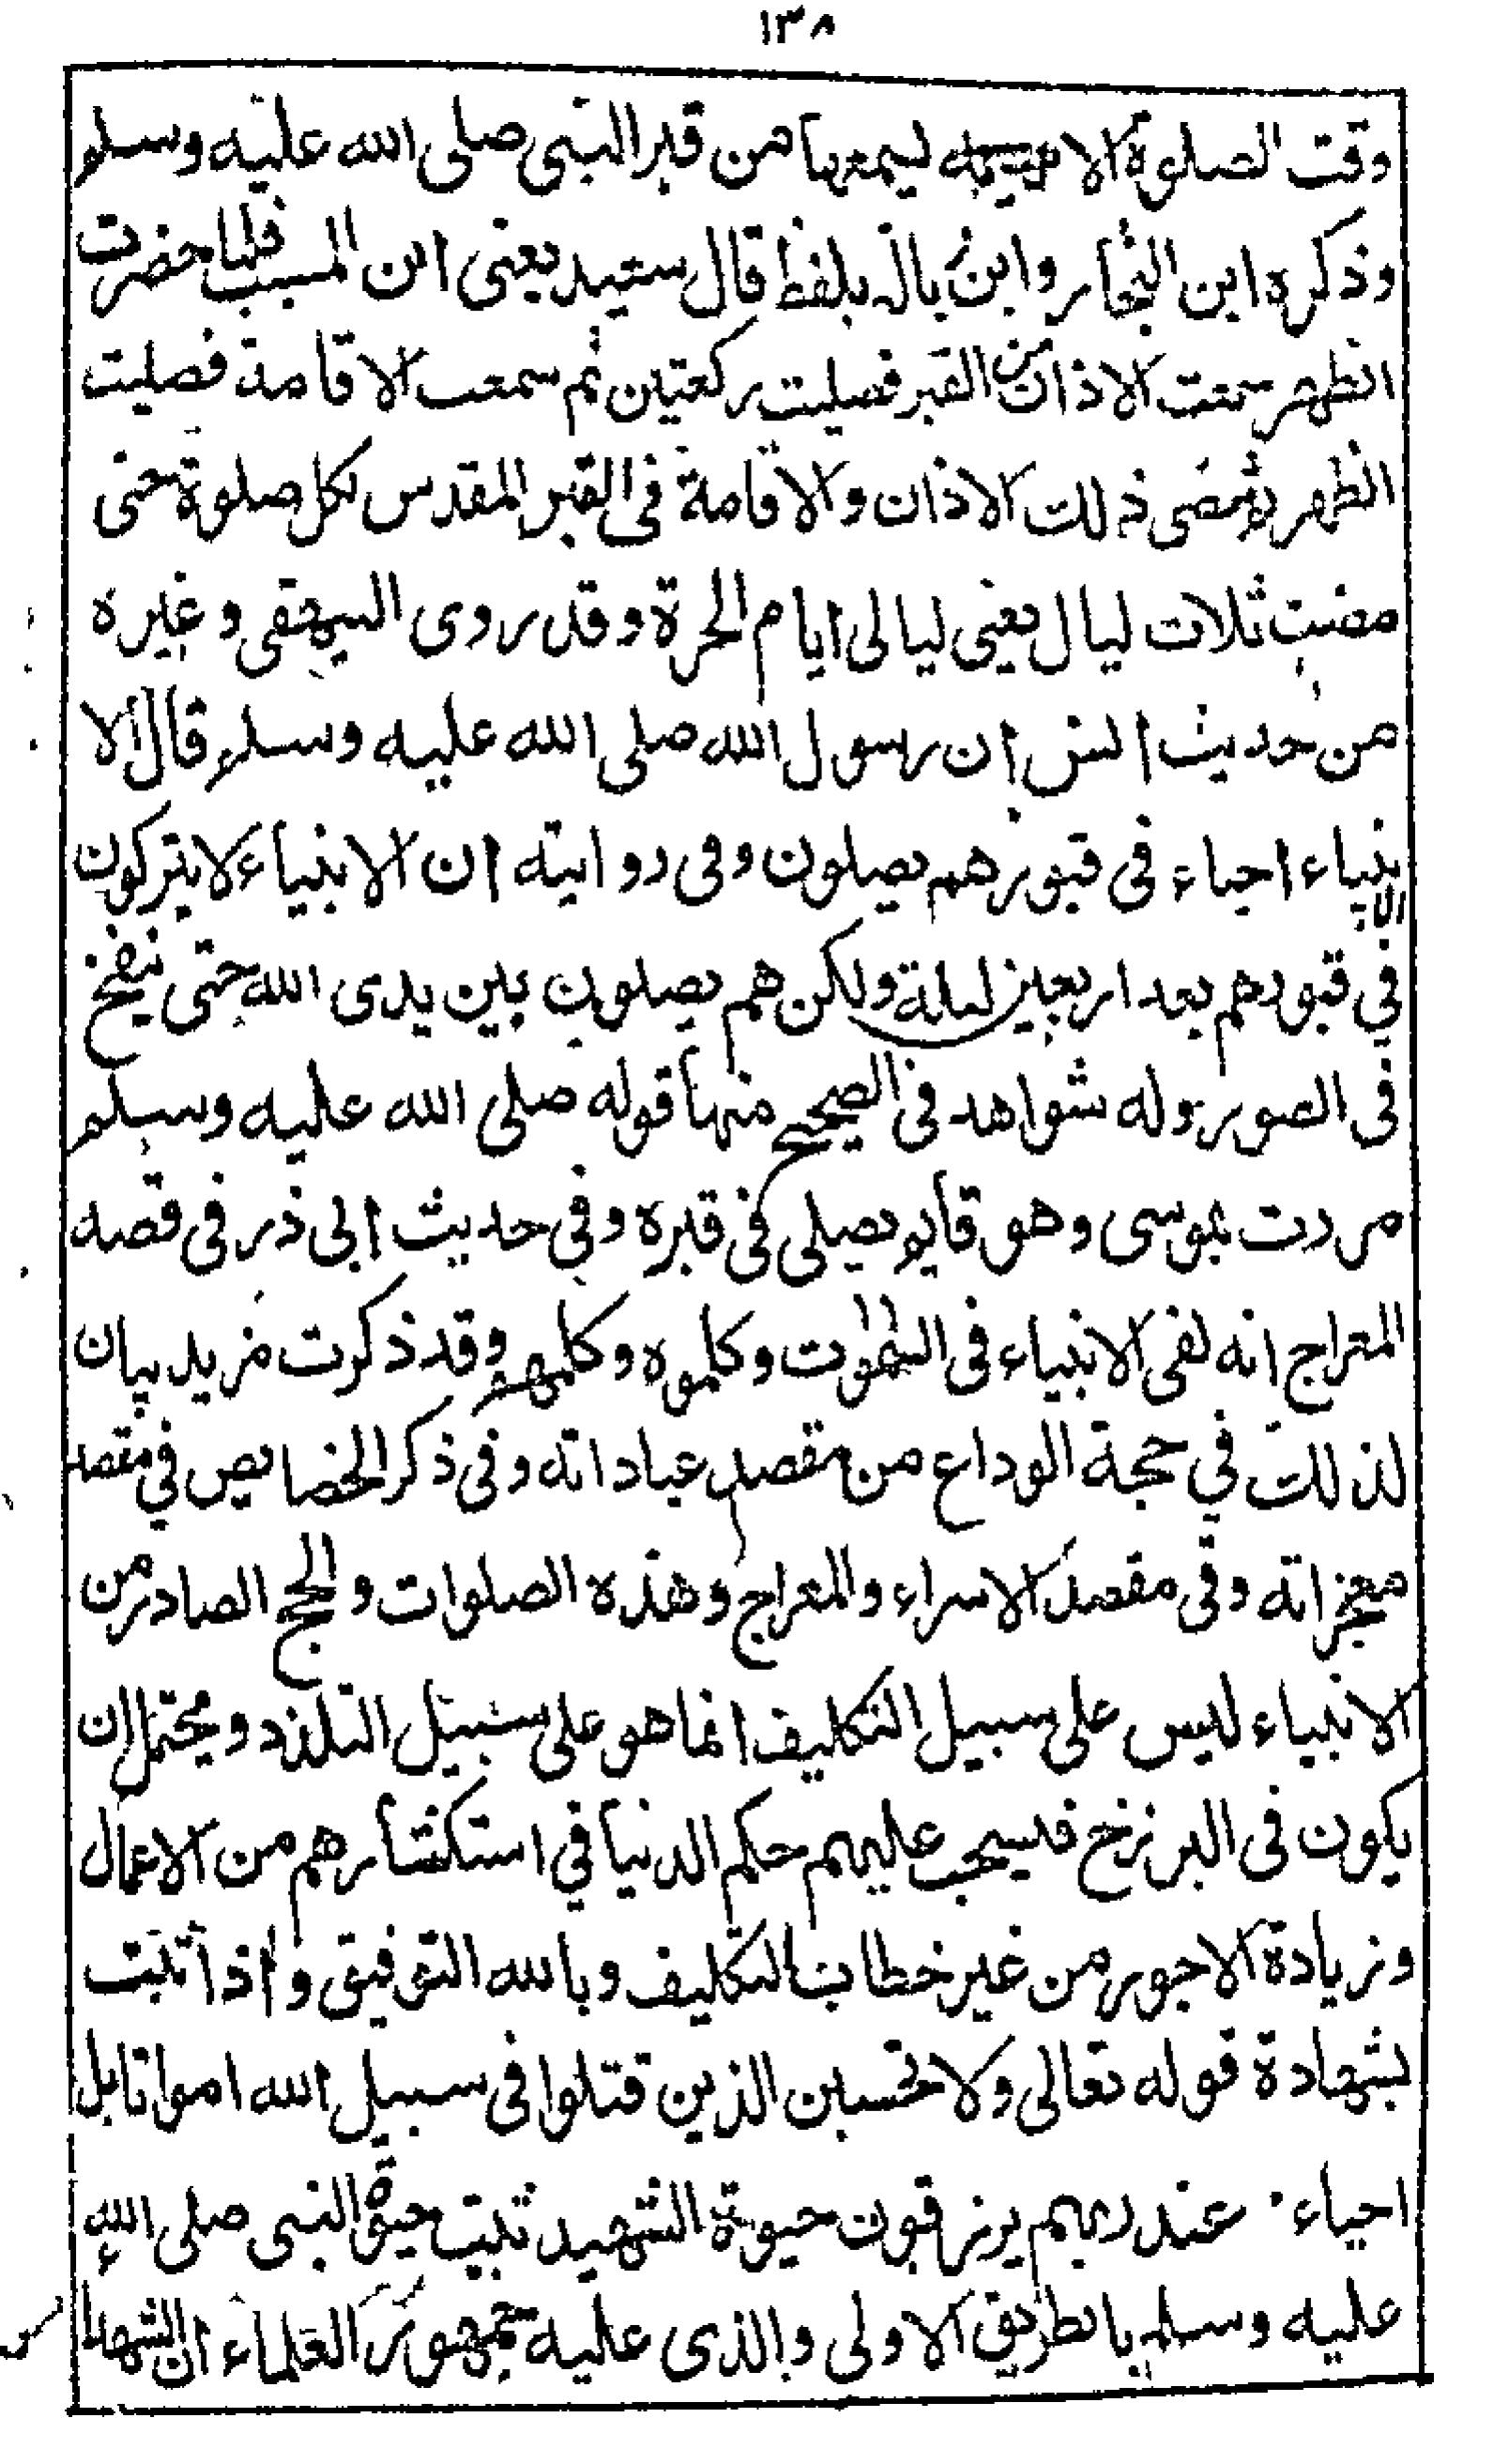 ١٣٨
وقت الصلوة الا بهمهمه يسمعها من قبر النبى صلى الله عليه وسلم
وذكره ابن النجار وابن زبالة بلفظ قال سعيد يعنى ابن المسيب فلما حضرت
الظهر سمعت الاذان من القبر فصليت ركعتين ثم سمعت الاقامة فصليت
الظهر ثم مضى ذلك الاذان والاقامة فى القبر المقدس لكل صلوة حتى
مضت ثلاث ليال يعنى ليالى ايام الحرة وقد روى البيهقى وغيره
من حديث انس ان رسول الله صلى الله عليه وسلم قال الا
نبياء احياء فى قبورهم يصلون وفى رواية ان الانبياء لا يتركون
فى قبورهم بعد اربعين ليلة ولكن هم يصلون بين يدى الله حتى ينفخ
فى الصور وله شواهد فى الصحيح منها قوله صلى الله عليه وسلم
مررت بموسى وهو قايم يصلى فى قبره وفى حديث ابى ذر فى قصه
المعراج انه لقى الانبياء فى السموات وكلموه وكلمهم وقد ذكرت مزيد بيان
لذلك في حجة الوداع من مقصد عباداته وفى ذكر الخصايص في مقصد
معجزاته وفى مقصد الاسراء والمعراج وهذه الصلوات والحج الصادر من
الانبياء ليس على سبيل التكليف انما هو على سبيل التلذد ويحتمل ان
يكون فى البرزخ فيسحب عليهم حكم الدنيا في استكثارهم من الاعمال
وزيادة الاجور من غير خطاب التكليف وبالله التوفيق واذا ثبت
بشهادة قوله تعالى ولا تحسبن الذين قتلوا فى سبيل الله امواتا بل
احياء عند ربهم يرزقون حيوة الشهيد ثبت حيوة النبى صلى الله
عليه وسلم بالطريق الاولى والذى عليه جمهور العلماء ان الشهدا